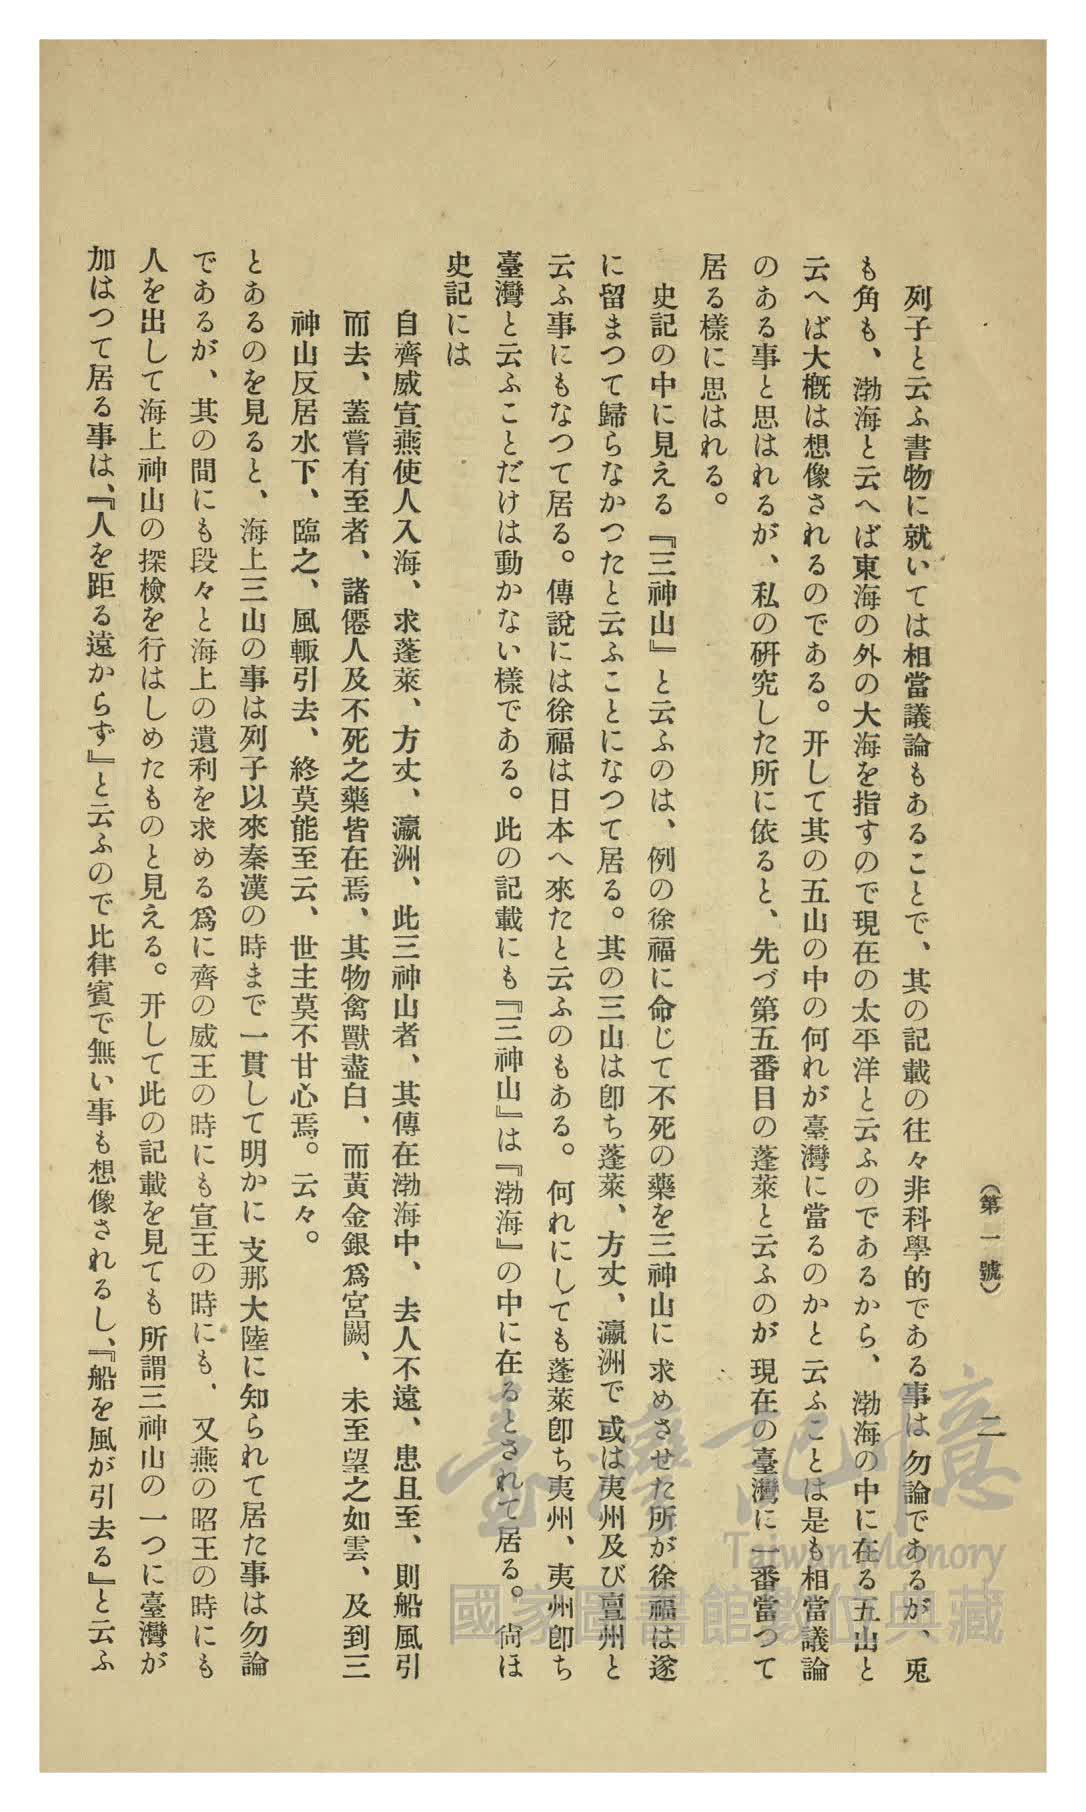 (第一號)
二
列子と云ふ書物に就いては相當議論もあることで、其の記載の往々非科學的である事は勿論であるが、兎
も角も、渤海と云へば東海の外の大海を指すので現在の太平洋と云ふのであるから、渤海の中に在る五山と
云へば大槪は想像されるのである。开して其の五山の中の何れが臺灣に當るのかと云ふことは是も相當議論
のある事と思はれるが、私の硏究した所に依ると、先づ第五番目の蓬萊と云ふのが現在の臺灣に一番當つて
居る樣に思はれる。
史記の中に見える『三神山』と云ふのは、例の徐福に命じて不死の藥を三神山に求めさせた所が徐福は遂
に留まつて歸らなかつたと云ふことになつて居る。其の三山は卽ち蓬萊、方丈、瀛洲で或は夷州及び亶州と
云ふ事にもなつて居る。傳說には徐福は日本へ來たと云ふのもある。何れにしても蓬萊卽ち夷州、夷州卽ち
臺灣と云ふことだけは動かない樣である。此の記載にも『三神山』は『渤海』の中に在るとされて居る。尙ほ
史記には
自齊威宣燕使人入海、求蓬萊、方丈、瀛洲、此三神山者、其傳在渤海中、去人不遠、患且至、則船風引
而去、蓋嘗有至者、諸僊人及不死之藥皆在焉、其物禽獸盡白、而黃金銀爲宮闕、未至望之如雲、及到三
神山反居水下、臨之、風輙引去、終莫能至云、世主莫不甘心焉。云々。
とあるのを見ると、海上三山の事は列子以來秦漢の時まで一貫して明かに支那大陸に知られて居た事は勿論
であるが、其の間にも段々と海上の遺利を求める爲に齊の威王の時にも宣王の時にも、又燕の昭王の時にも
人を出して海上神山の探檢を行はしめたものと見える。开して此の記載を見ても所謂三神山の一つに臺灣が
加はつて居る事は、『人を距る遠からず』と云ふので比律賓で無い事も想像されるし、『船を風が引去る』と云ふ
臺灣記憶
Taiwan Memory
國家圖書館數位典藏